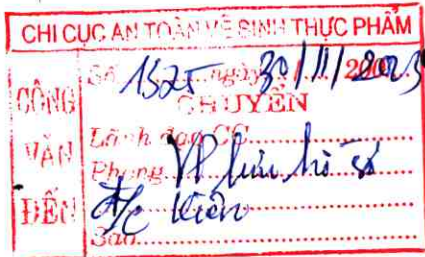 CHI CỤC AN TOÀN VỆ SINH THỰC PHẨM
CÔNG VĂN ĐẾN
Số 1525 ngày 30/11/2023
CHUYỂN
Lãnh đạo CC
Phòng VP lưu hồ sơ
đ/c Kiên
Sao